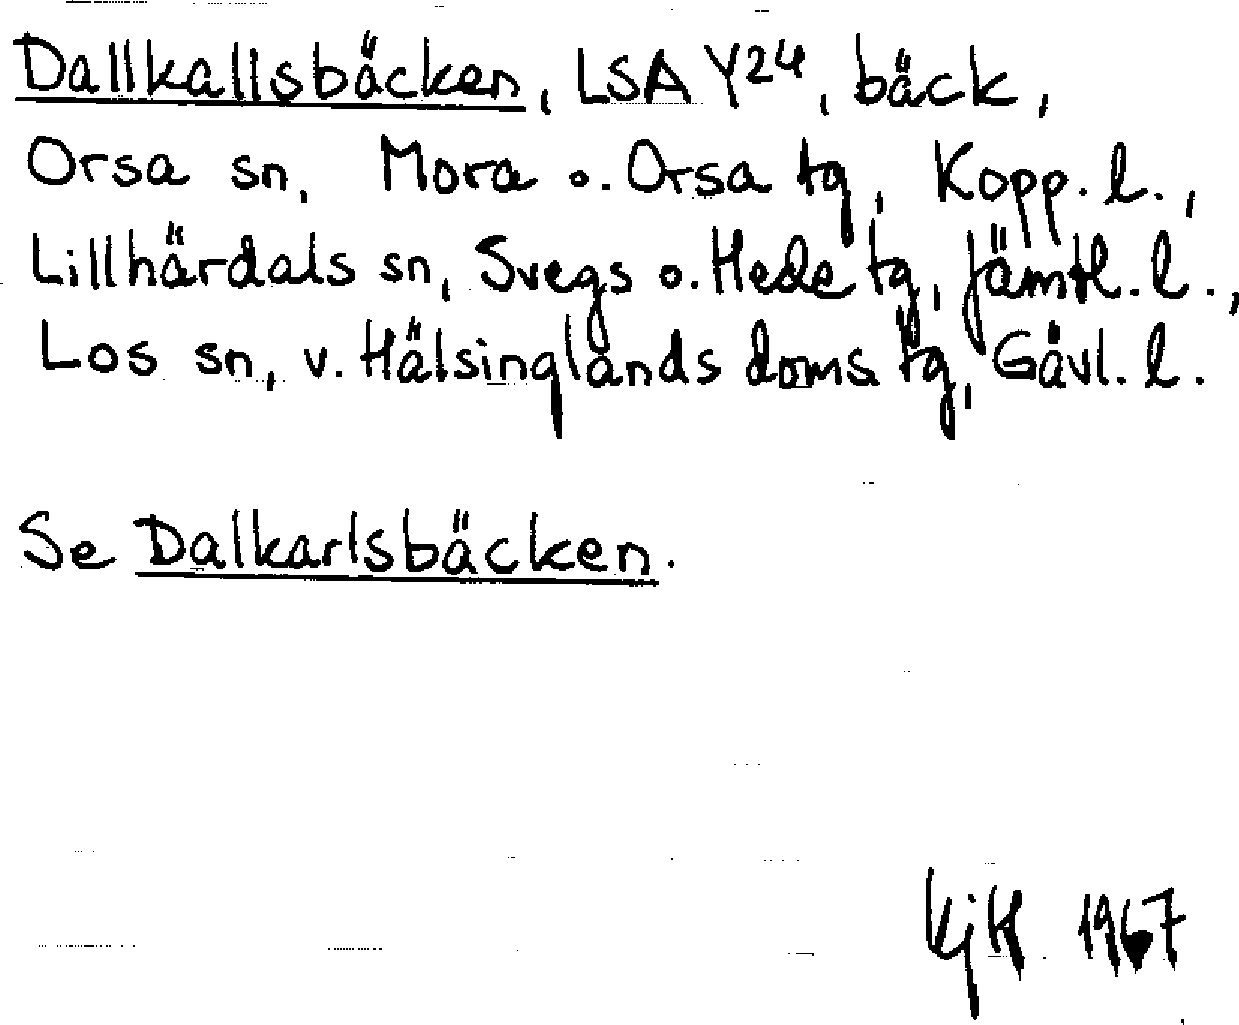 Dallkallsbäcken, LSA Y24, bäck,
Orsa sn, Mora o. Orsa tg, Kopp. l.,
Lillhärdals sn, Svegs o. Hede tg, Jämtl. l.,
Los sn, v. Hälsinglands doms. tg, Gävl. l.
Se Dalkarlsbäcken.
KjH 1967